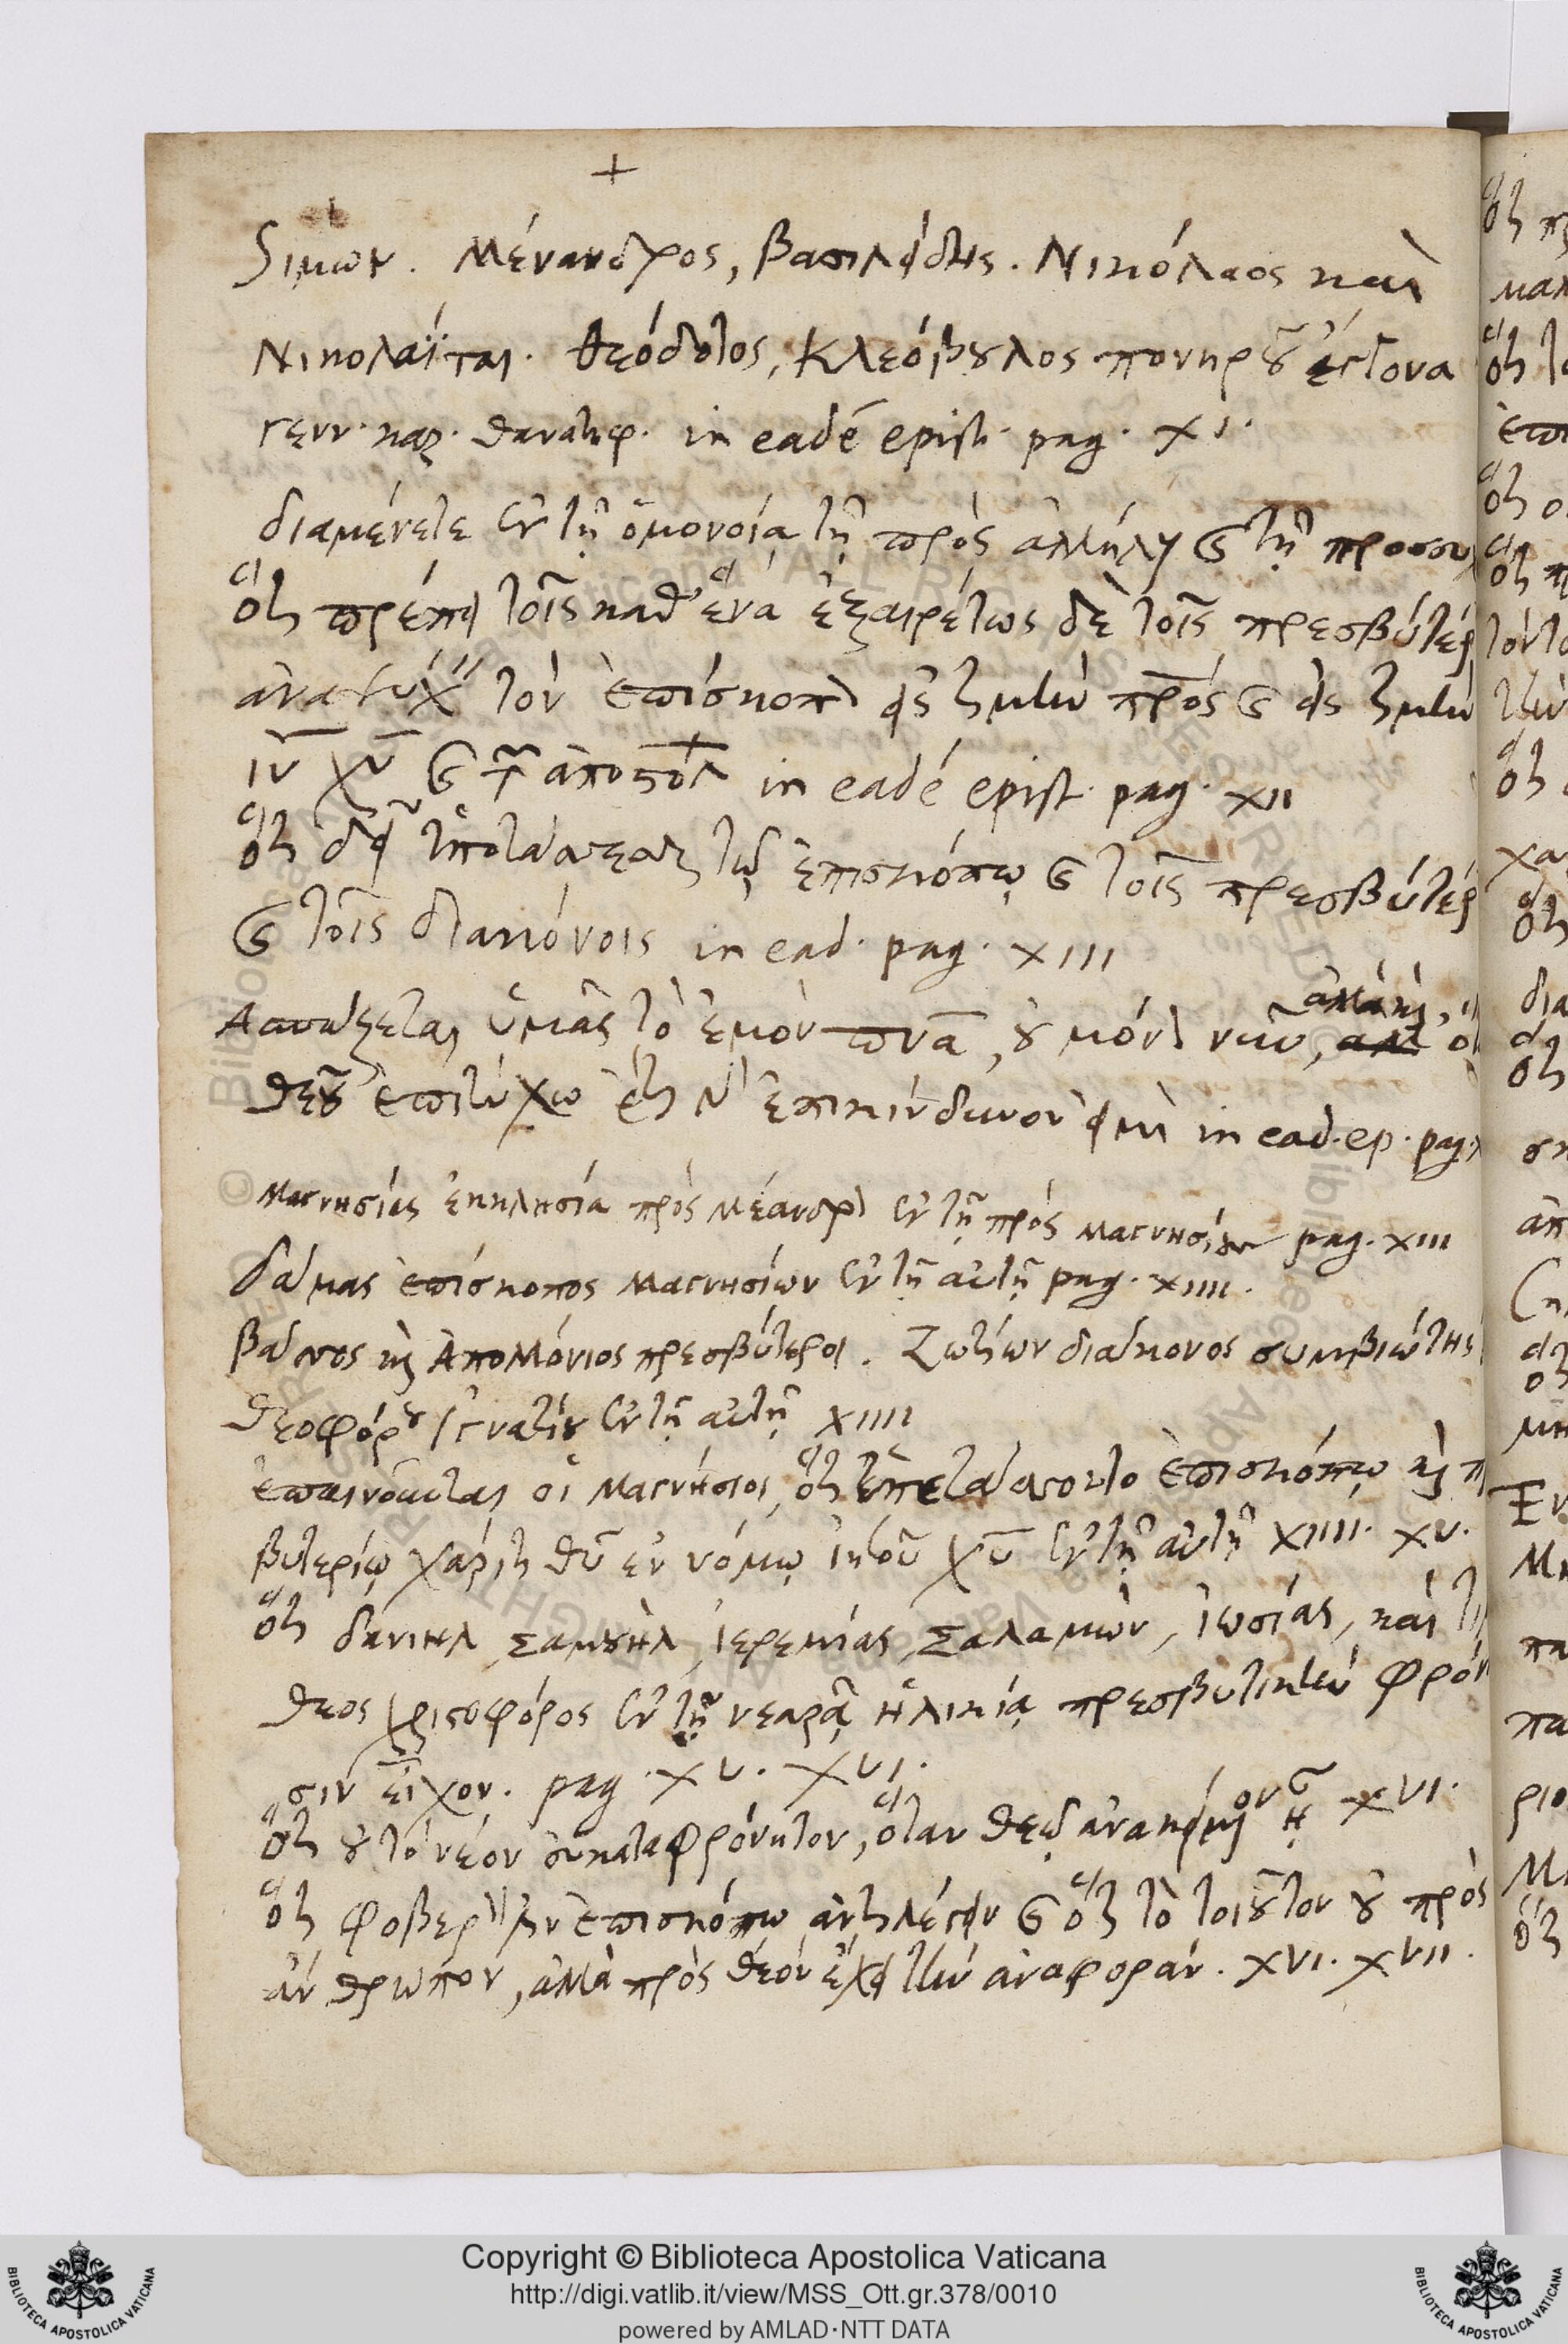 +
Σιμων. Μένανδρος, βασιλείδης. Νικόλαος και
Νικολαΐται. θεόδοτος, Κλεόβουλος πονηροῦ ἔκγονα
γενν. καρ. θανατηφ. in eadē epist. pag. XI.
διαμένετε ἐν τῇ ὁμονοίᾳ τῇ πρὸς ἀλλήλ καὶ τῇ προσευ
ὅτι πρέπει τοῖς καθ' ἕνα ἐξαιρέτως δὲ τοῖς πρεσβυτέρ
ἀναψύχ τὸν ἐπίσκοπον εἰς τιμὴν προς καὶ εἰς τιμὴν
ιυ χυ καὶ τῶν ἀποστολ in eadē epist. pag. XII
ὅτι δεῖ ὑποτάσσεσθαι τῷ ἐπισκόπῳ καὶ τοῖς πρεσβυτέρ
καὶ τοῖς διακόνοις in ead. pag. XIII
Ασπάζεται ὑμᾶς τὸ ἐμὸν πνα, οὐ μόνον νῦν, ἀλλὰ καὶ,
θεοῦ ἐπιτύχω ἔτι γὰρ ἐπικίνδυνον εἰμὶ in ead. ep. pag.
Μαγνησίας ἐκκλησία πρὸς Μέανδρον ἐν τῇ πρὸς Μαγνησίους pag. XIII
Δάμας ἐπίσκοπος Μαγνησίων ἐν τῇ αὐτῇ pag. XIIII.
βάσσος καὶ Ἀπολλόνιος πρεσβύτεροι. Ζωτίων διάκονος συμβιώτης
Θεοφόρου Ἰγνατίου ἐν τῇ αὐτῇ XIIII
ἐπαινοῦνται οἱ Μαγνήσιοι, ὅτι ὑπετάσσοντο ἐπισκόπῳ καὶ π
βυτερίῳ χάριτι θυ ἐν νόμῳ ἰησοῦ χυ ἐν τῇ αὐτῇ XIIII. XV.
ὅτι δανιηλ, σαμουὴλ, ἱερεμίας, Σαλαμὼν, ἰωσίας, καὶ τι
θεος χριστοφόρος ἐν τῇ νεαρᾷ ἡλικίᾳ πρεσβυτικὴν φρόν
σιν εἶχον. pag. XV. XVI.
ὅτι οὐ τὸ νέον εὐκαταφρόνητον, ὅταν θεῷ ἀνακείμενον ᾖ XVI.
ὅτι φοβερὸν ἐπισκόπῳ ἀντιλέγειν καὶ ὅτι τὸ τοιοῦτον οὐ πρὸς
ἄνθρωπον, ἀλλὰ πρὸς θεὸν ἔχει τὴν ἀναφοράν. XVI. XVII.
Copyright © Biblioteca Apostolica Vaticana
http://digi.vatlib.it/view/MSS_Ott.gr.378/0010
powered by AMLAD·NTT DATA
BIBLIOTECA APOSTOLICA VATICANA
BIBLIOTECA APOSTOLICA VATICANA